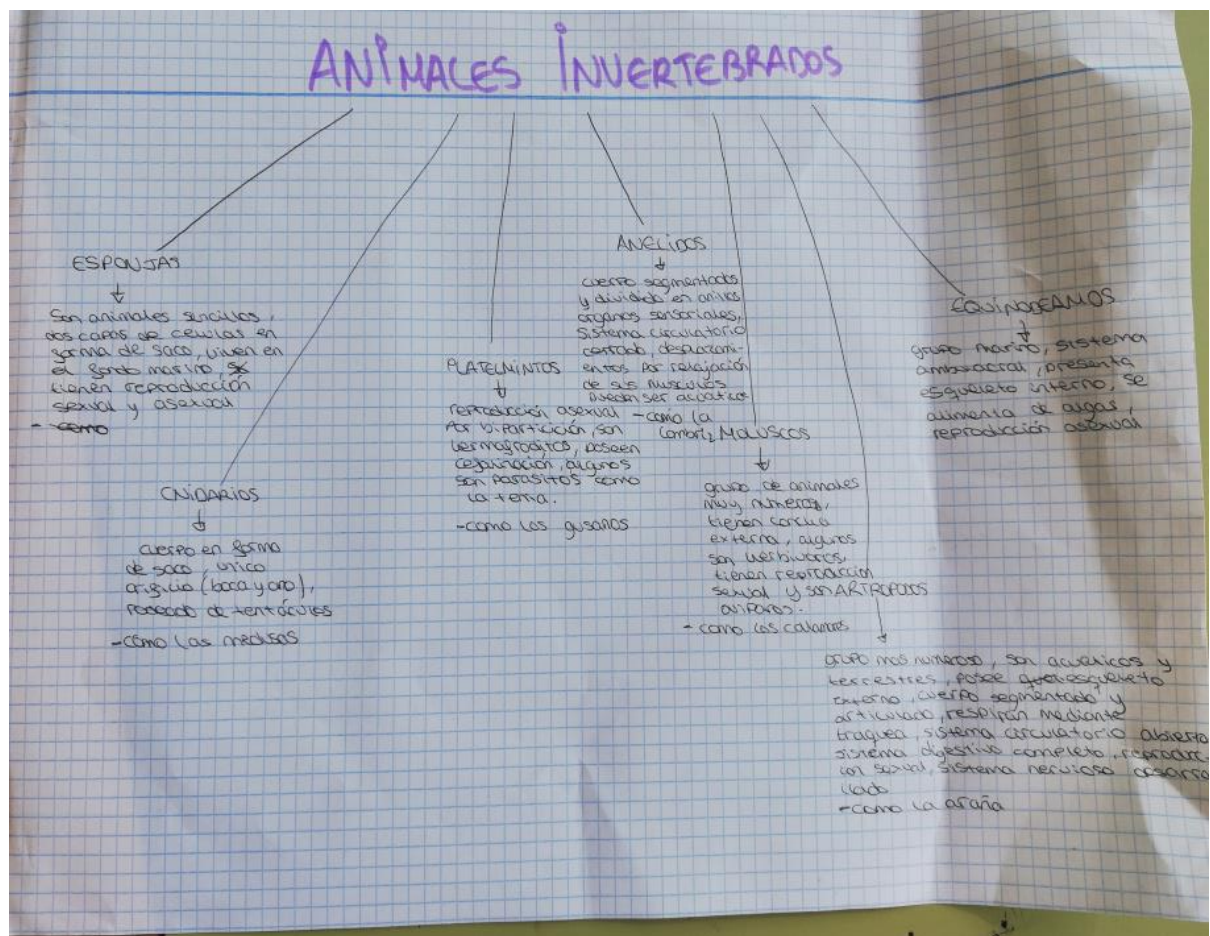 ANIMALES INVERTEBRADOS
ESPONJAS
Son animales sencillos,
dos capas de celulas en
forma de saco, viven en
el fondo marino,
tienen reproducción
sexual y asexual
- como
CNIDARIOS
cuerpo en forma
de saco, unico
orificio (boca y ano),
rodeado de tentáculos
-como las medusas
PLATELMINTOS
reproducción asexual
Por bipartición, son
hermafroditas, poseen
algunos
son parasitos como
la tenia.
-como los gusanos
ANELIDOS
cuerpo segmentados
y dividido en anillos
organos sensoriales,
Sistema circulatorio
cerrado, desplazami-
entos por relajación
de sus musculos
Pueden ser acuaticos
-como la
lombriz
MOLUSCOS
grupo de animales
muy numeroso,
tienen concha
externa, algunos
son herbivoros,
tienen reproducción
sexual y son
oviparos.
- como los calamares
ARTROPODOS
grupo mas numeroso, son acuaticos y
terrestres, posee esqueleto
externo, cuerpo segmentado y
articulado, respiran mediante
traquea, sistema circulatorio abierto,
sistema digestivo completo, reproduc-
ion sexual, sistema nervioso desarro
llado
-como la araña
EQUINODERMOS
grupo marino, sistema
ambulacral, presenta
esqueleto interno, se
alimenta de algas,
reproducción asexual